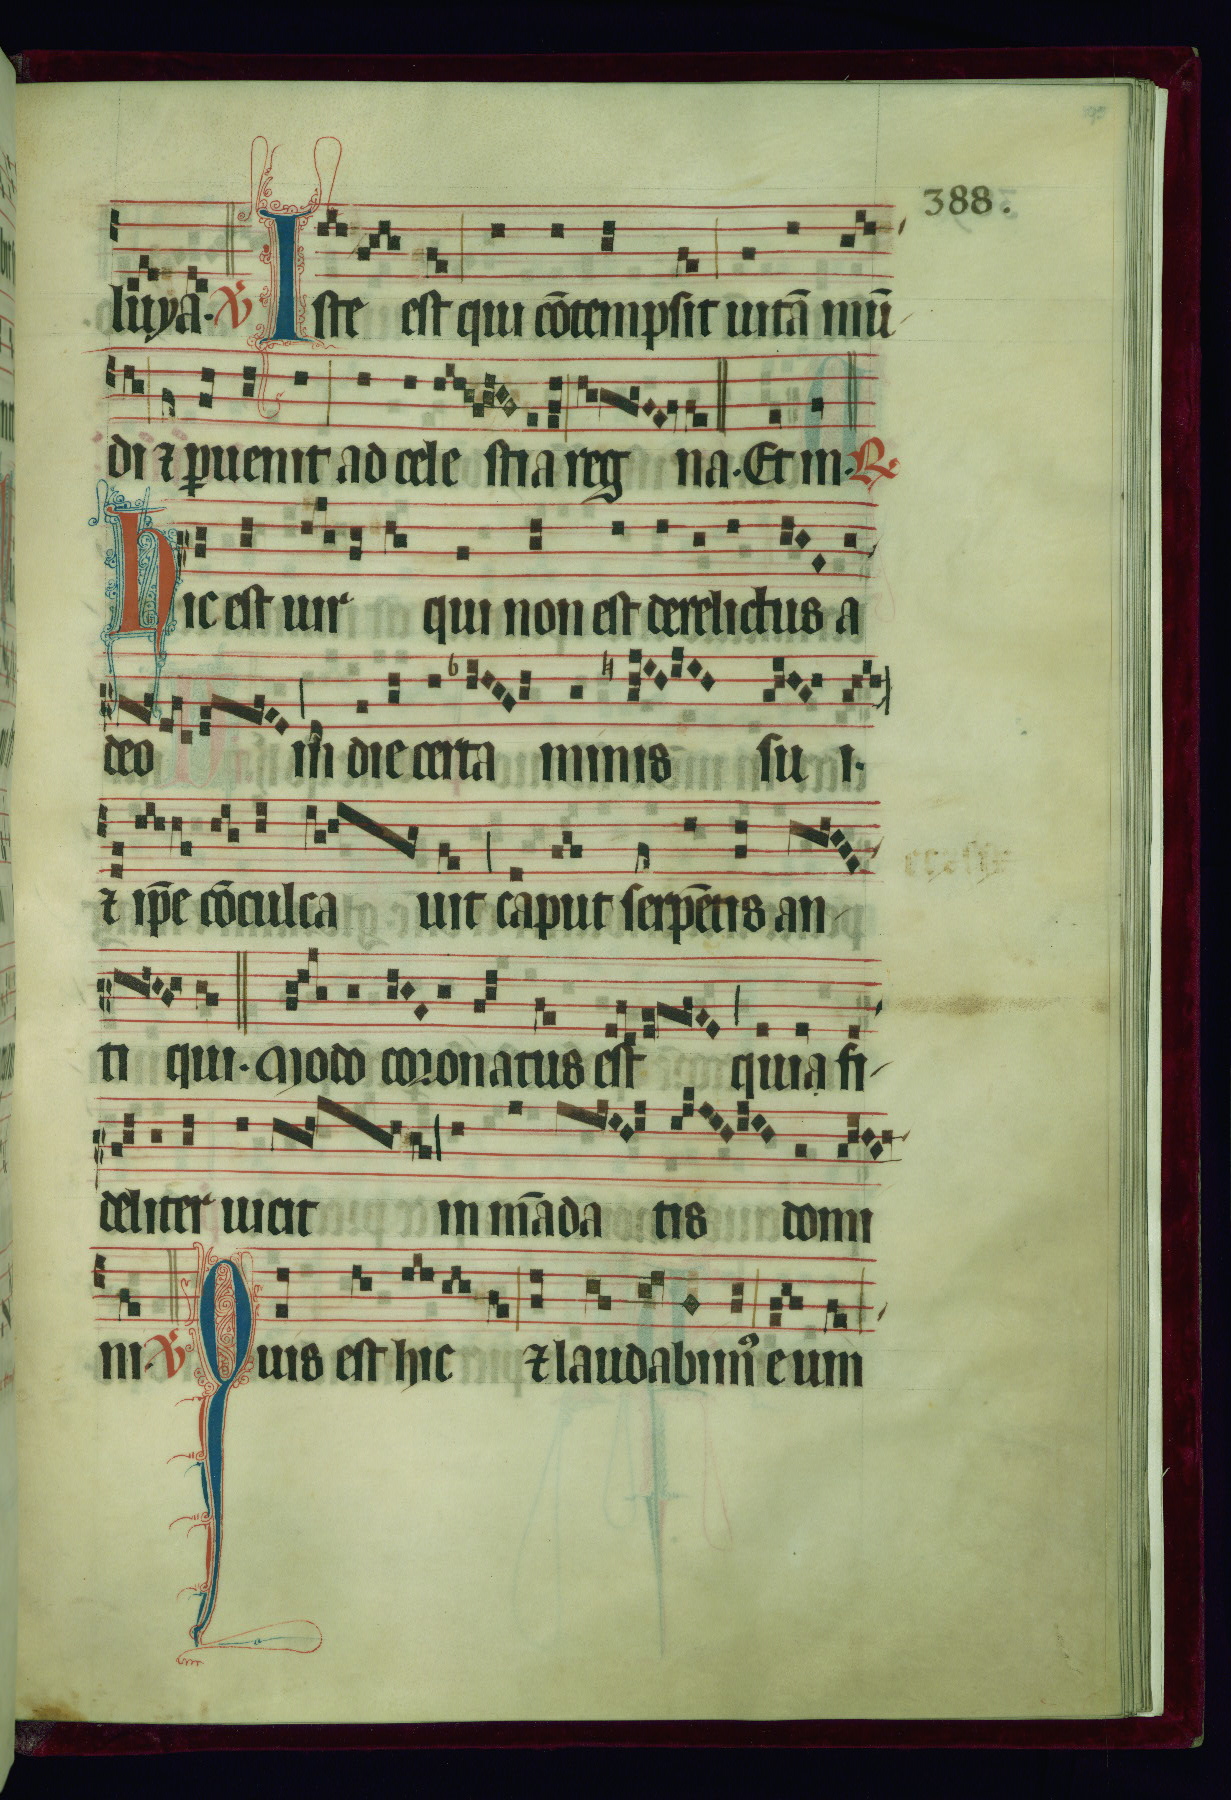 388.
luya. ℣ Iste est qui cōtempsit uitā mū
di ⁊ ꝑuenit ad cele stia reg na. Et in. ℟
hic est uir qui non est derelictus a
deo in die certa minis su i.
⁊ ip̄e cōculca uit caput serpētis an
ti qui. Modo coronatus est quia fi
deliter uicit in māda tis domi
ni. ℣ Quis est hic ⁊ laudabimꝰ eum